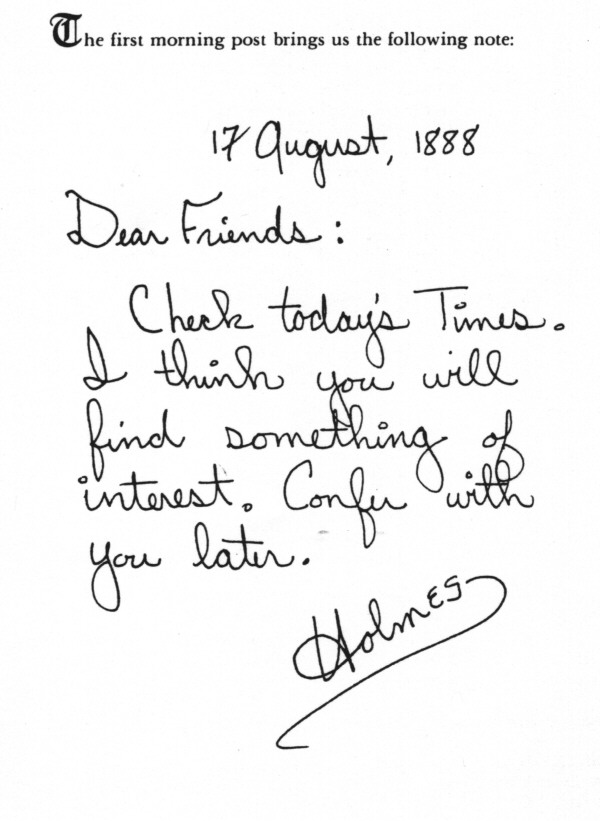 The first morning post brings us the following note:
17 August, 1888
Dear Friends:
Check today's Times.
I think you will
find something of
interest. Confer with
you later.
Holmes